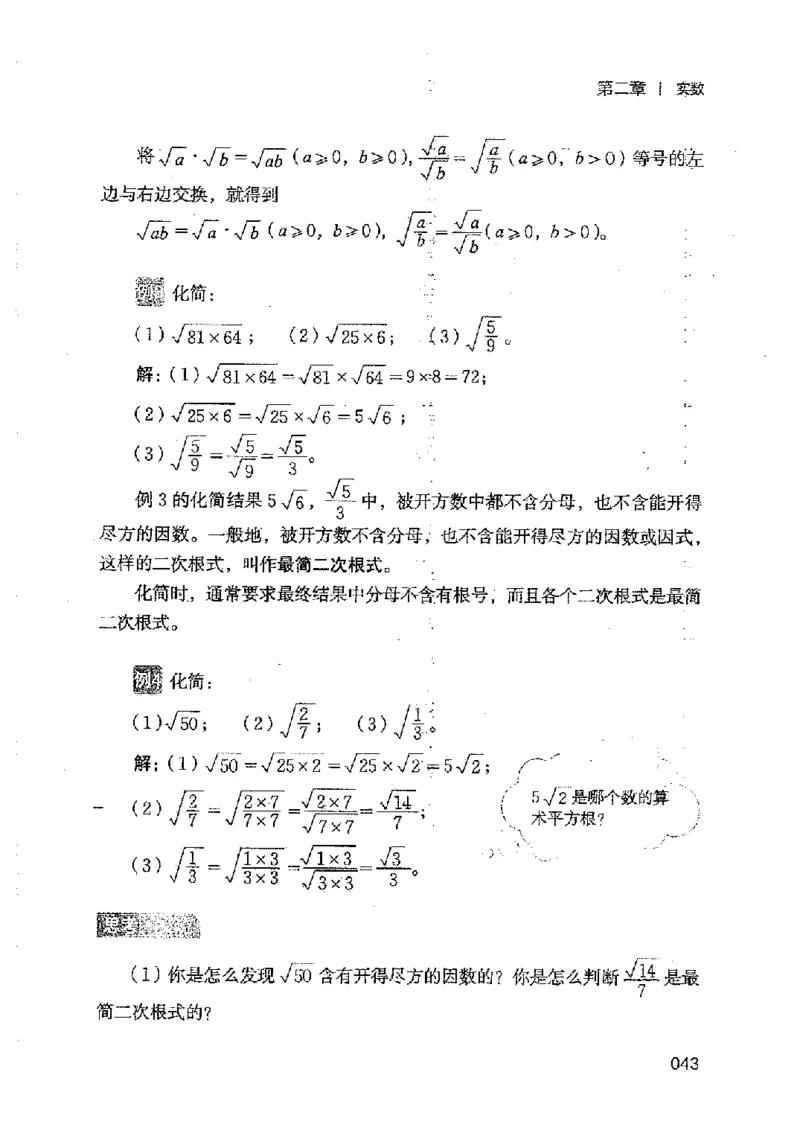 第二章 | 实数
将√a · √b = √ab (a≥0, b≥0), √a/√b = √(a/b) (a≥0, b>0) 等号的左
边与右边交换，就得到
√ab = √a · √b (a≥0, b≥0), √(a/b) = √a/√b (a≥0, b>0)。
例3 化简：
(1) √(81×64)； (2) √(25×6)； (3) √(5/9)。
解：(1) √(81×64) = √81 × √64 = 9×8 = 72；
(2) √(25×6) = √25 × √6 = 5√6；
(3) √(5/9) = √5/√9 = √5/3。
例 3 的化简结果 5√6，√5/3 中，被开方数中都不含分母，也不含能开得
尽方的因数。一般地，被开方数不含分母，也不含能开得尽方的因数或因式，
这样的二次根式，叫作最简二次根式。
化简时，通常要求最终结果中分母不含有根号，而且各个二次根式是最简
二次根式。
例4 化简：
(1) √50； (2) √(2/7)； (3) √(1/3)。
解：(1) √50 = √(25×2) = √25 × √2 = 5√2；
(2) √(2/7) = √((2×7)/(7×7)) = √(2×7)/√(7×7) = √14/7；
5√2 是哪个数的算
术平方根？
(3) √(1/3) = √((1×3)/(3×3)) = √(1×3)/√(3×3) = √3/3。
思考
(1) 你是怎么发现 √50 含有开得尽方的因数的？你是怎么判断 √14/7 是最
简二次根式的？
043